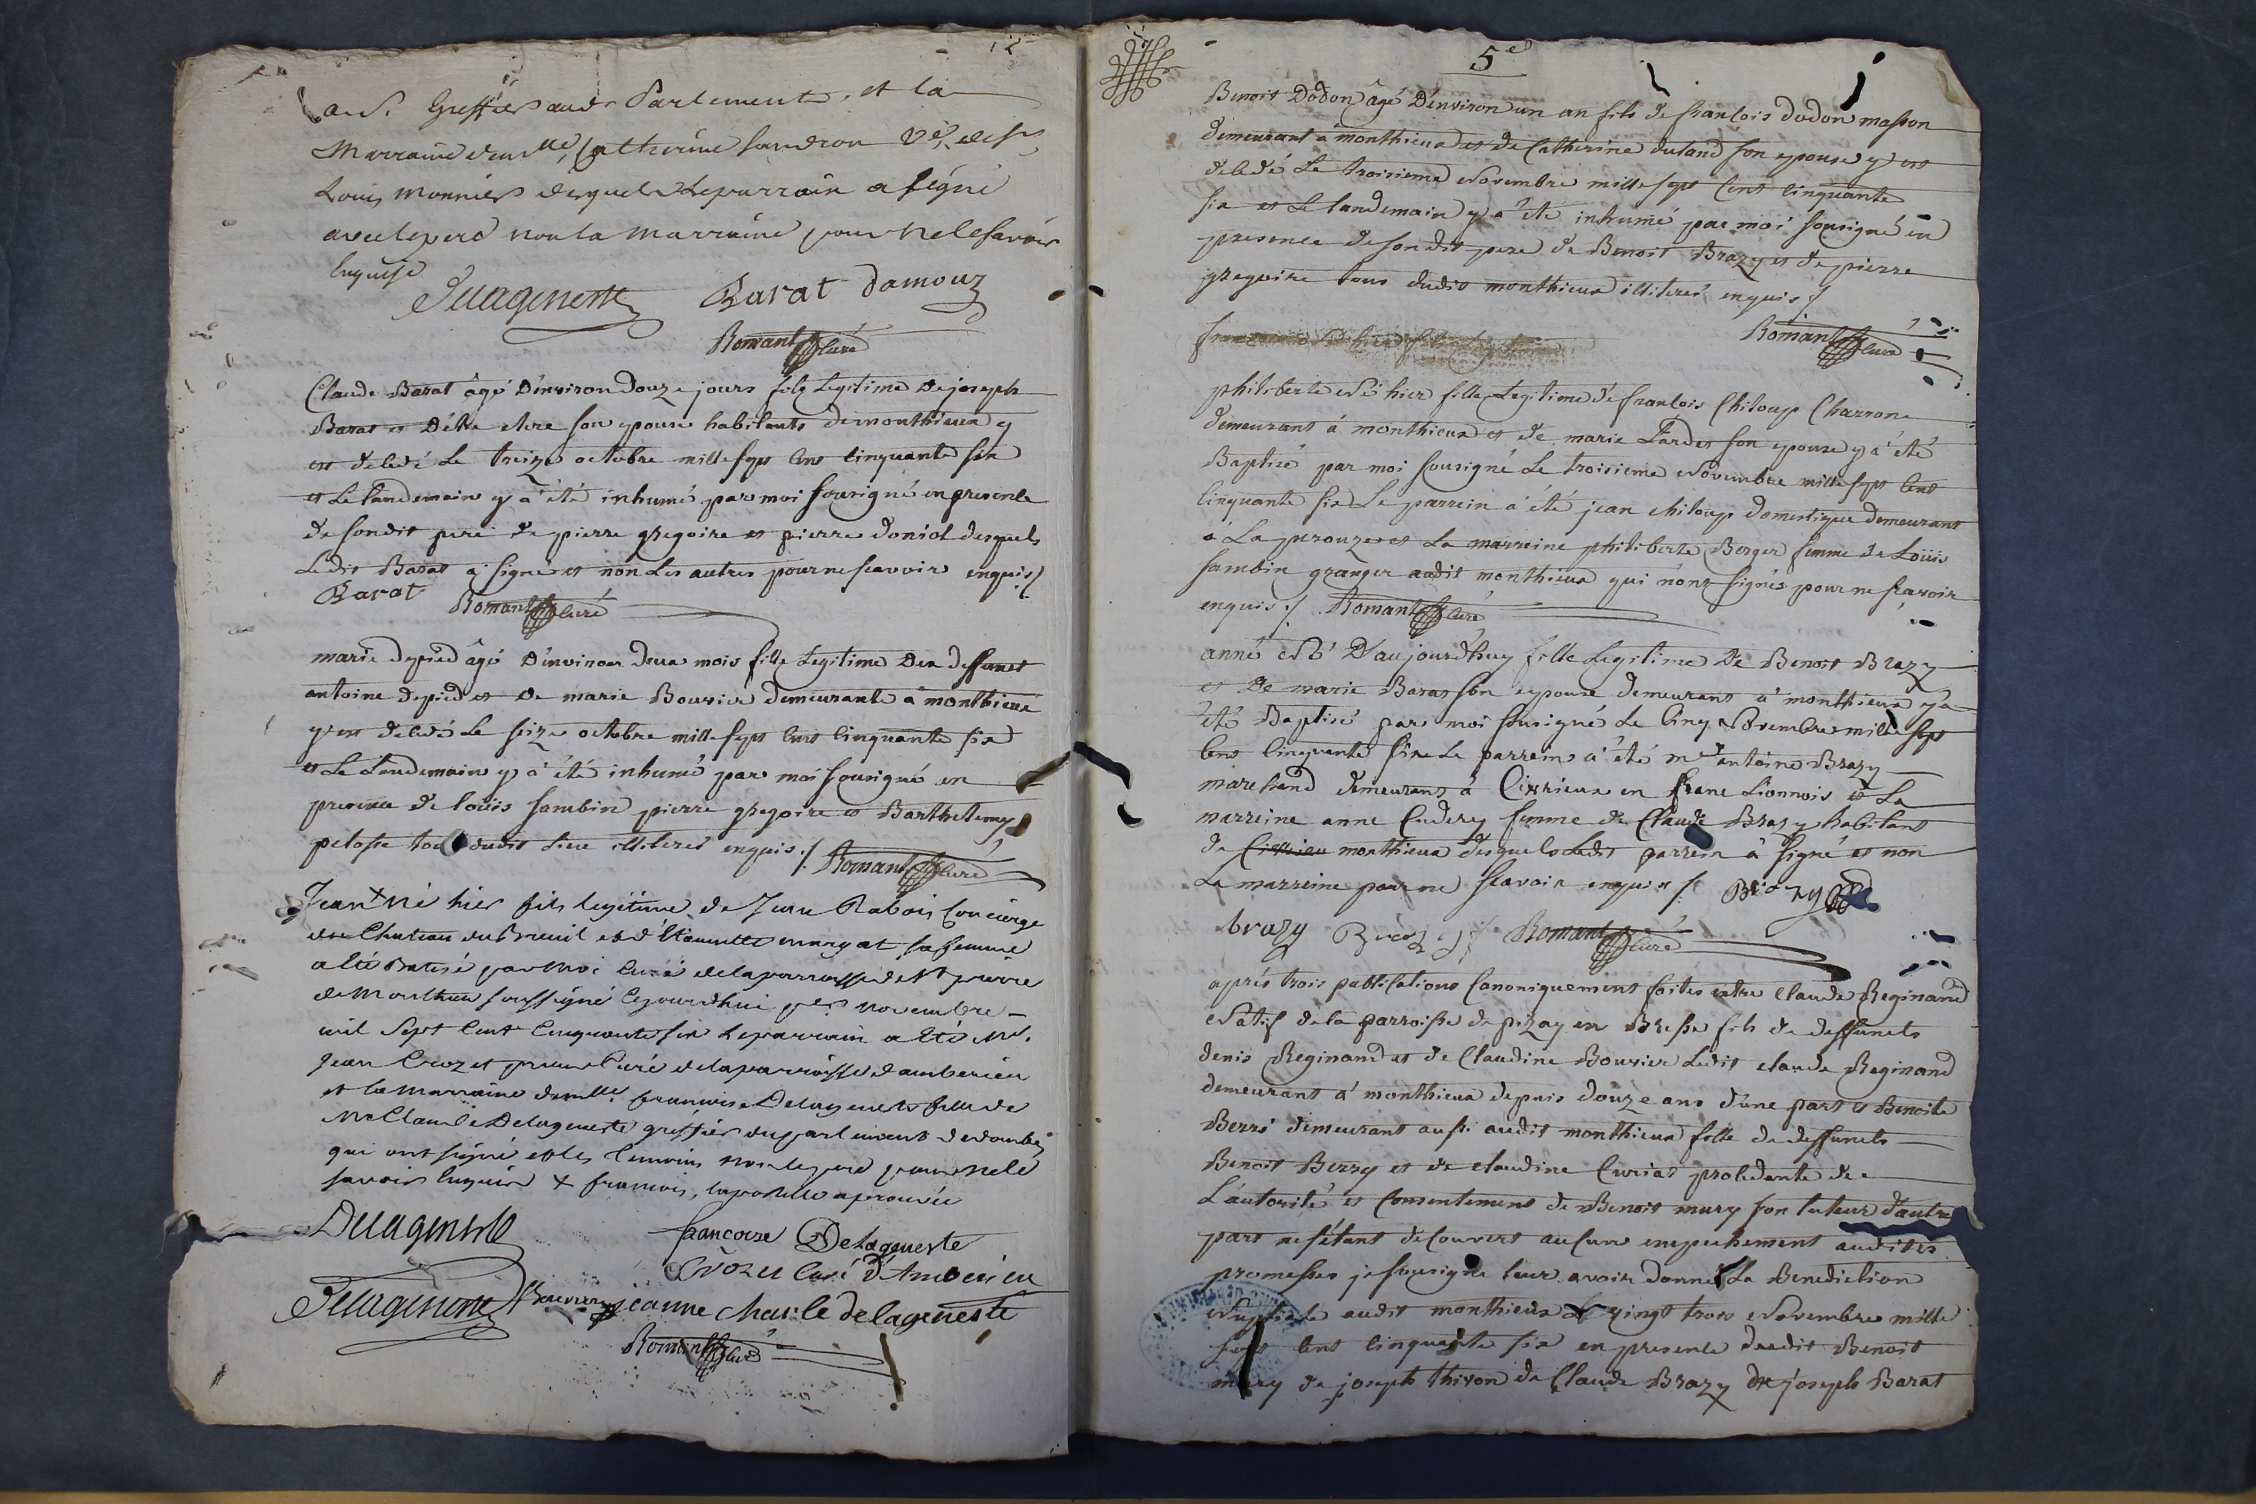 Greffier audit Parlement, et la
Marraine dem.lle Catherine Sandron V.e de S.r
Louis Monnier desquels Leparrain a signé
avec lepere non la marraine pour ne le savoir
enquise
Delageneste Barat damouz
Romant Curé
Claude Barat âgé D'environ Douze jours fils Legitime De joseph
Barat et D' son epouse habitants de monthieux y
est decedé Le treize octobre mille sept cent cinquante six
et Le landemain y a été inhumé par moi sousigné en presence
de sondit pere de pierre gregoire et pierre doniol desquels
Ledit Barat a signé et non Les autres pour ne scavoir enquis /
Barat Romant Curé
marie depied âgé D'environ deux mois fille Legitime De deffunct
antoine depied et de marie Bouvier demeurante a monthieux
y est decedé Le seize octobre mille sept cent cinquante six
et Le Landemain y a été inhumé par moi sousigné en
presence de loüis sambin pierre gregoire et Barthelemy
pelosse tous dudit Lieu illiterés enquis ./. Romant Curé
Jean + né hier fils legitime de Jean Rabois Concierge
du Chateau du Breuil et d' margat sa femme
a été Batisé par moi Curé de la parroisse de St pierre
de Monthieu soussigné cejourdhui p.er novembre
mil Sept Cent Cinquante six Le parrain a été M.r
Jean Crozet pretre Curé de la parroisse d'amberieu
et la Marraine dem.lle francoise Delageneste fille de
M.e Claude Delageneste greffier du parlement de dombes
qui ont signé et les temoins non le pere pour ne le
savoir Enquis + francois, laposille aprouvée
Delageneste francoise Delageneste
Crozet Curé d'Amberieu
Delageneste jeanne Charle delageneste
Romant Curé
5e
Benoit Dodon âgé D'environ un an fils de francois dodon masson
demeurant a monthieux et de Catherine dutand son epouse y est
decedé Le troisieme Novembre mille sept Cent Cinquante
six et Le landemain y a été inhumé par moi sousigné en
presence de son dit pere de Benoit Brazy et de pierre
gregoire tous dudit monthieux illiterés enquis ./.
Romant Curé
philiberte Né hier fille Legitime de francois Chiloup Charron
demeurant á monthieux et de marie Tardet son epouse y a été
Baptisé par moi sousigné Le troisieme Novembre mille sept Cent
Cinquante six Le parrein a été jean chiloup domestique demeurant
a La prouze et La marreine philiberte Berger femme de Loüis
sambin granger audit monthieux qui n'ont signés pour ne scavoir
enquis ./. Romant Curé
anne Né D'aujourdhuy fille Legitime De Benoit Brazy
et de marie Barat son epouse demeurant a monthieux y a
été Baptisé par moi sousigné Le Cinq Novembre mille sept
Cent Cinquante six Le parrein a été m.re antoine Brazy
marchand demeurant á Civrieux en franc Lionnois et La
marreine anne Cudery femme de Claude Brazy habitant
de Civrieu monthieux desquels Ledit parrein a signé et non
La marreine pour ne scavoir enquis ./. Brazy
brazy Romant Curé
aprés trois publications Canoniquement faites entre Claude Reginand
Natif de la parroisse de pizay en Bresse fils de deffuncts
denis Reginand et de Claudine Bouvier Ledit claude Reginand
demeurant á monthieux depuis douze ans d'une part et Benoite
Berré demeurant aussi audit monthieux fille de deffuncts
Benoit Berry et de claudine Curiat procedante de
L'autorité et Consentement de Benoit mury son tuteur d'autre
part ne s'étant découvert aucun empechement audites
promesses je sousigné leur avoir donné La Benediction
Nuptiale audit monthieux Le vingt trois Novembre mille
sept Cent Cinquante six en presence dudit Benoit
mury de joseph thivon de Claude Brazy de joseph Barat